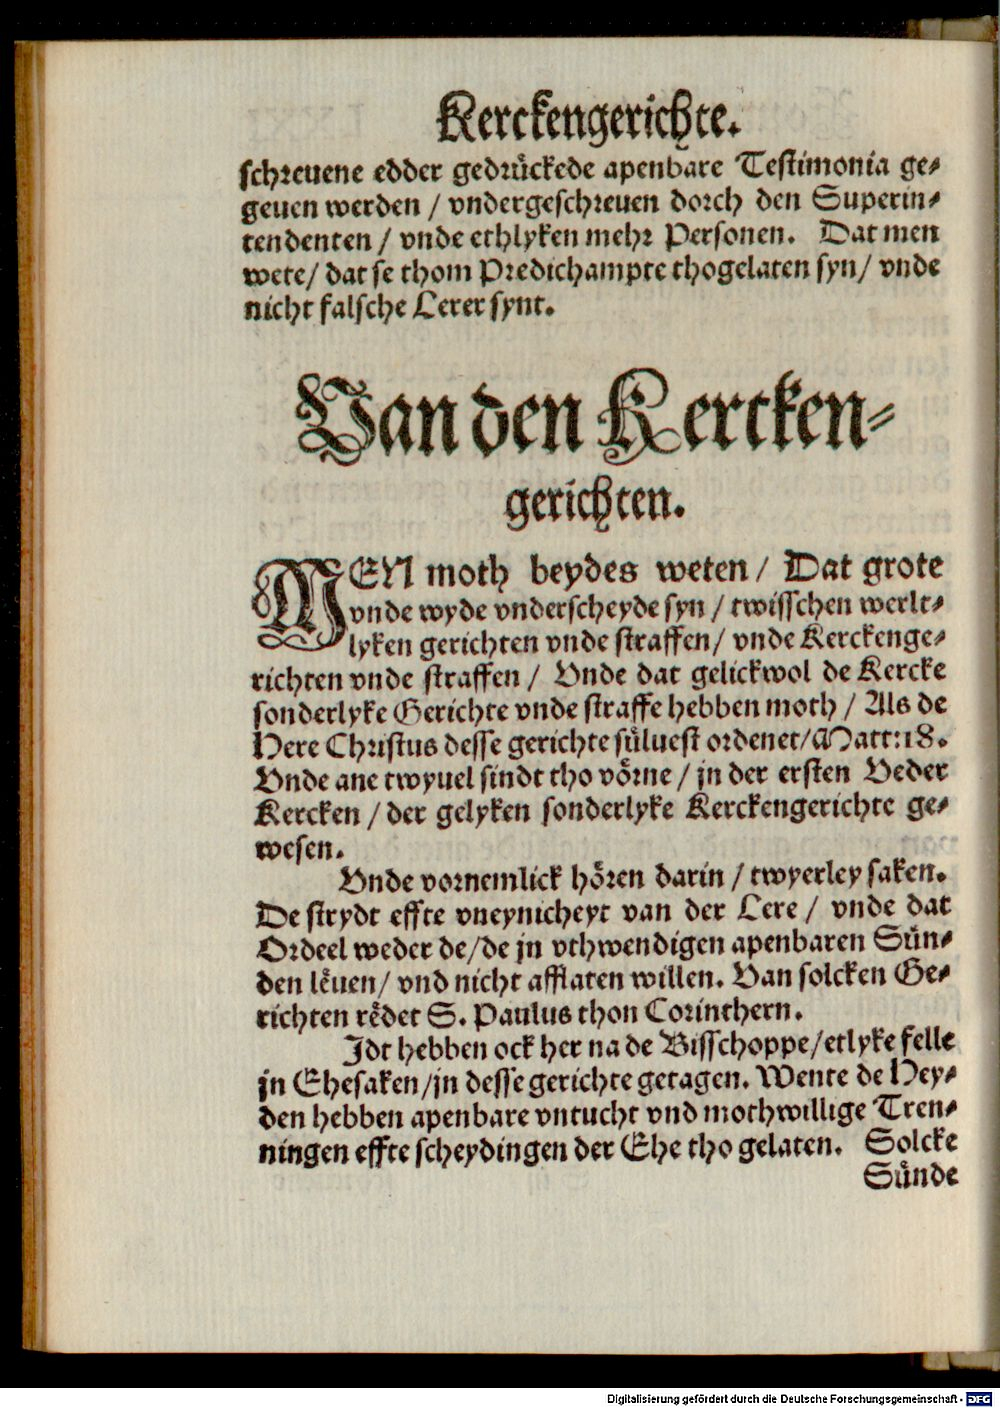 Kerckengerichte.
schreuene edder gedrückede apenbare Testimonia ge-
geuen werden / vndergeschreuen dorch den Superin-
tendenten / vnde ethlyken mehr Personen. Dat men
wete/ dat se thom Predichampte thogelaten syn/ vnde
nicht falsche Lerer synt.
Van den Kercken-
gerichten.
MEN moth beydes weten / Dat grote
vnde wyde vnderscheyde syn / twisschen werlt-
lyken gerichten vnde straffen/ vnde Kerckenge-
richten vnde straffen / Vnde dat gelickwol de Kercke
sonderlyke Gerichte vnde straffe hebben moth / Als de
Here Christus desse gerichte sůluest ordenet/Matt:18.
Vnde ane twyuel sindt tho vörne / jn der ersten Veder
Kercken / der gelyken sonderlyke Kerckengerichte ge-
wesen.
Vnde vornemlick hören darin / twyerley saken.
De strydt effte vneynicheyt van der Lere / vnde dat
Ordeel weder de/de jn vthwendigen apenbaren Sůn-
den lěuen/ vnd nicht afflaten willen. Van solcken Ge-
richten rědet S. Paulus thon Corinthern.
Jdt hebben ock her na de Bisschoppe/etlyke felle
jn Ehesaken/jn desse gerichte getagen. Wente de Hey-
den hebben apenbare vntucht vnd mothwillige Tren-
ningen effte scheydingen der Ehe tho gelaten. Solcke
Sůnde
Digitalisierung gefördert durch die Deutsche Forschungsgemeinschaft - DFG